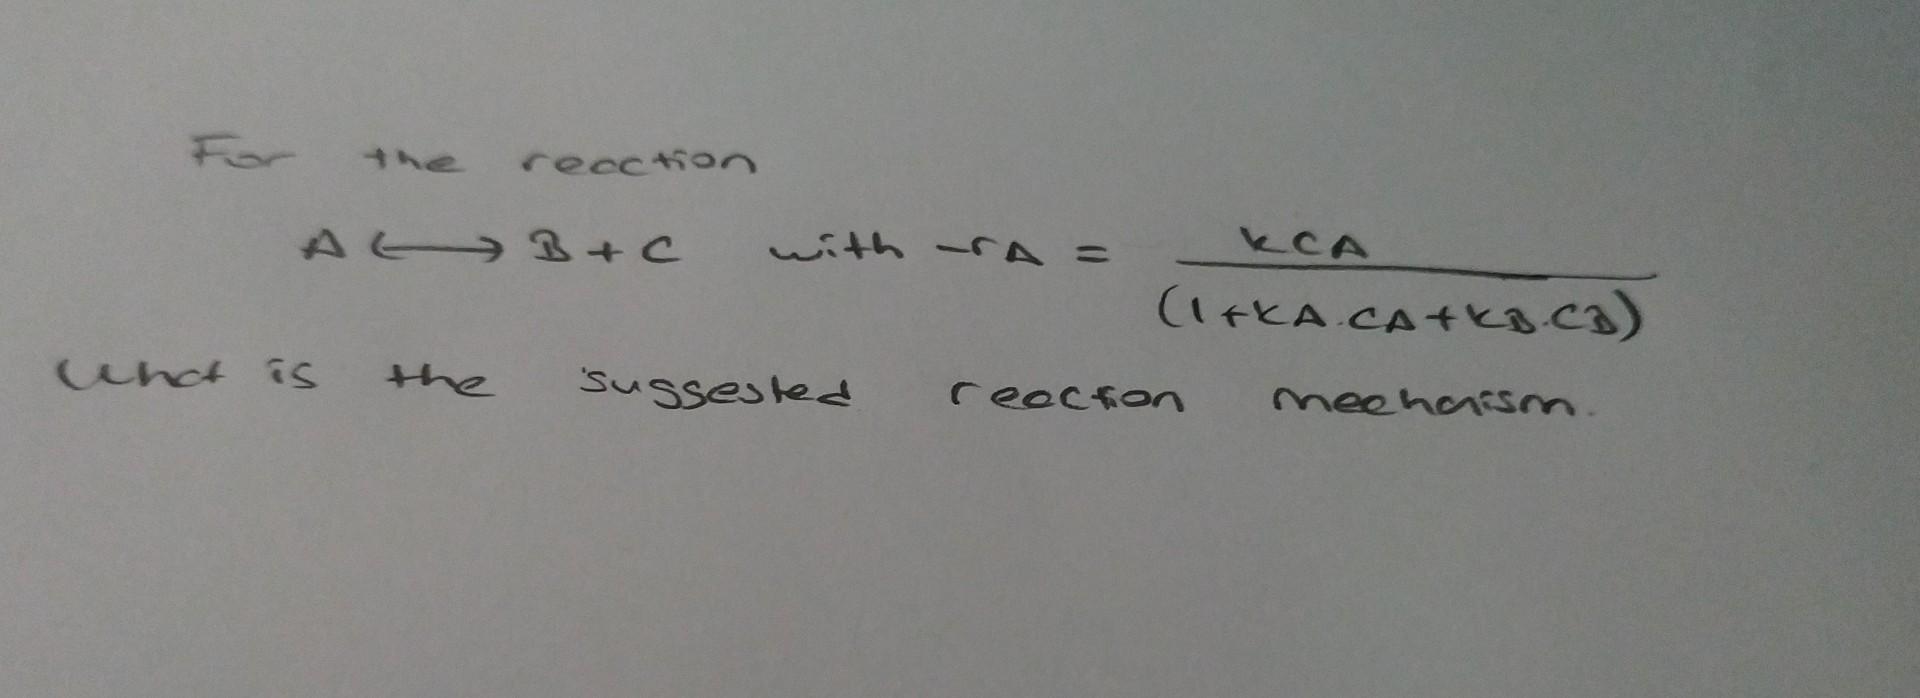 For the reaction
A ⟷ B + C with -rA = kCA / (1+KA.CA+KB.CB)
What is the suggested reaction meehaism.